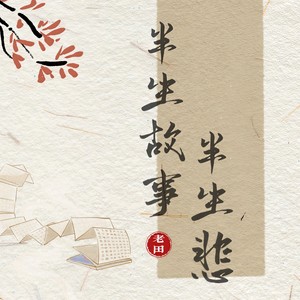 半生故事
半生悲
老田